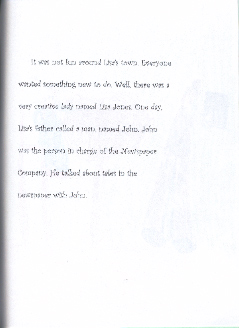 It was not fun around Lisa's town. Everyone
wanted something new to do. Well, there was a
very creative lady named Lisa Jones. One day,
Lisa's father called a man named John. John
was the person in charge of the Newspaper
Company. He talked about tales in the
newspaper with John.